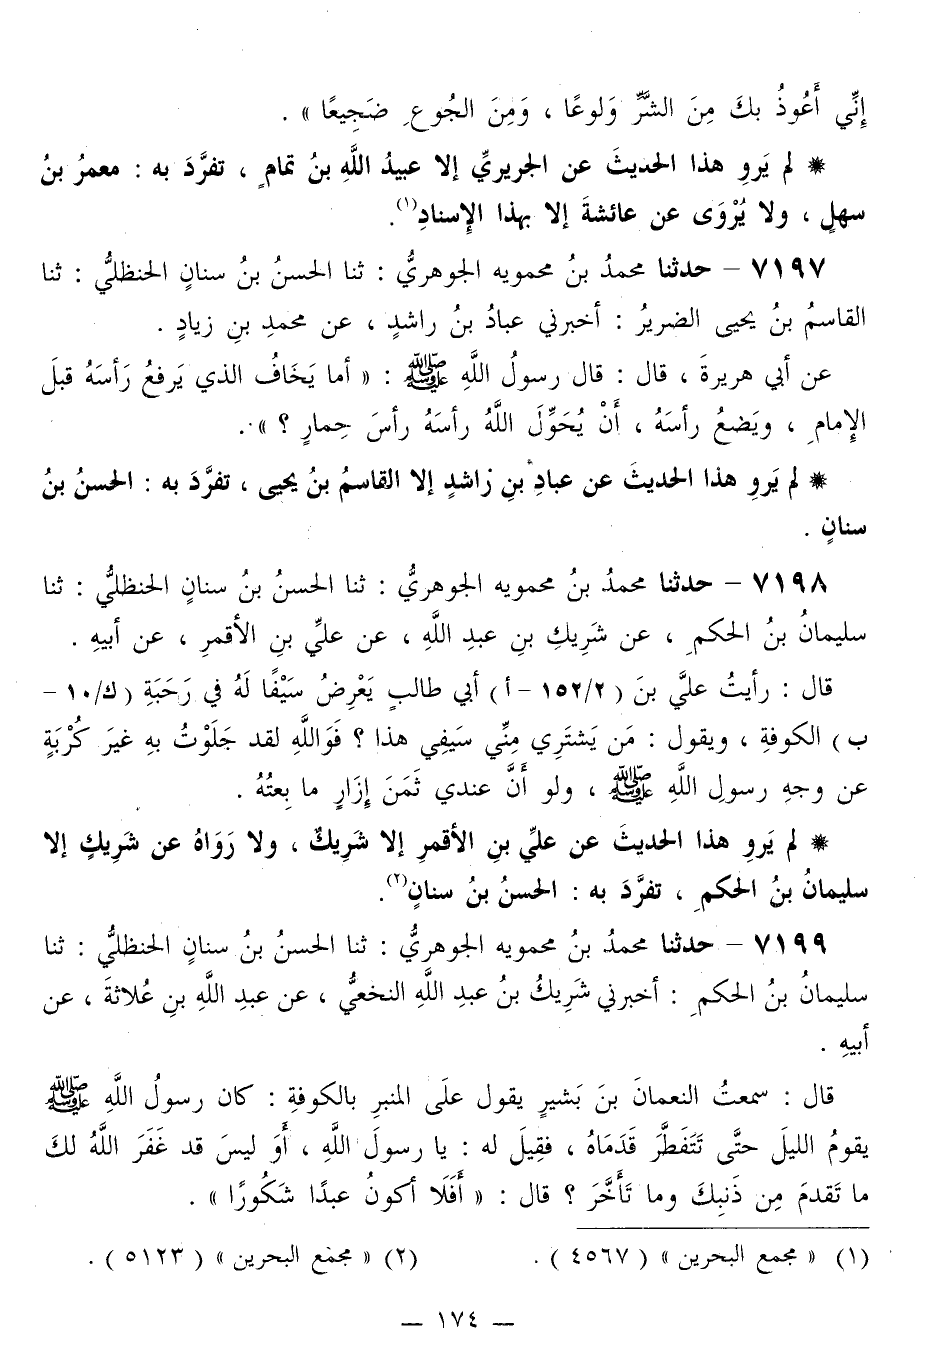 إنِّي أَعُوذُ بكَ مِنَ الشَّرِّ وَلوعًا ، وَمِنَ الجُوعِ ضَجِيعًا » .
* لم يَروِ هذا الحديثَ عن الجريريِّ إلا عبيدُ اللَّهِ بنُ تمامٍ ، تفرَّدَ به : معمرُ بنُ
سهلٍ ، ولا يُرْوَى عن عائشةَ إلا بهذا الإسنادِ(١).
٧١٩٧ – حدثنا محمدُ بنُ محمويه الجوهريُّ : ثنا الحسنُ بنُ سنانٍ الحنظليُّ : ثنا
القاسمُ بنُ يحيى الضريرُ : أخبرني عبادُ بنُ راشدٍ ، عن محمدِ بنِ زيادٍ .
عن أبي هريرةَ ، قال : قال رسولُ اللَّهِ ﷺ : « أما يَخَافُ الذي يَرفعُ رَأسَهُ قبلَ
الإمامِ ، ويَضعُ رأسَهُ ، أَنْ يُحَوِّلَ اللَّهُ رأسَهُ رأسَ حِمارٍ ؟ » .
* لم يَروِ هذا الحديثَ عن عبادِ بنِ راشدٍ إلا القاسمُ بنُ يحيى ، تفرَّدَ به : الحسنُ بنُ
سنانٍ .
٧١٩٨ – حدثنا محمدُ بنُ محمويه الجوهريُّ : ثنا الحسنُ بنُ سنانٍ الحنظليُّ : ثنا
سليمانُ بنُ الحكمِ ، عن شَرِيكِ بنِ عبدِ اللَّهِ ، عن عليِّ بنِ الأقمرِ ، عن أبيهِ .
قال : رأيتُ عليَّ بنَ (١٥٢/٢ – أ) أبي طالبٍ يَعْرِضُ سَيْفًا لَهُ في رَحَبَةِ (ك/١٠ –
ب) الكوفةِ ، ويقول : مَن يَشتَرِي مِنِّي سَيفِي هذا ؟ فَوَاللَّهِ لقد جَلَوْتُ بهِ غيرَ كُرْبَةٍ
عن وجهِ رسولِ اللَّهِ ﷺ ، ولو أنَّ عندي ثَمَنَ إزَارٍ ما بِعتُهُ .
* لم يَروِ هذا الحديثَ عن عليِّ بنِ الأقمرِ إلا شَرِيكٌ ، ولا رَوَاهُ عن شَرِيكٍ إلا
سليمانُ بنُ الحكمِ ، تفرَّدَ به : الحسنُ بنُ سنانٍ(٢).
٧١٩٩ – حدثنا محمدُ بنُ محمويه الجوهريُّ : ثنا الحسنُ بنُ سنانٍ الحنظليُّ : ثنا
سليمانُ بنُ الحكمِ : أخبرني شَرِيكُ بنُ عبدِ اللَّهِ النخعيُّ ، عن عبدِ اللَّهِ بنِ عُلاثةَ ، عن
أبيهِ .
قال : سمعتُ النعمانَ بنَ بَشيرٍ يقول علَى المنبرِ بالكوفةِ : كان رسولُ اللَّهِ ﷺ
يقومُ الليلَ حتَّى تَتَفطَّرَ قَدَمَاهُ ، فقِيلَ له : يا رسولَ اللَّهِ ، أَوَ ليسَ قد غَفَرَ اللَّهُ لكَ
ما تَقدمَ مِن ذَنبِكَ وما تَأخَّرَ ؟ قال : « أَفَلَا أكونُ عبدًا شَكُورًا » .
(١) « مجمع البحرين » ( ٤٥٦٧ ) . (٢) « مجمع البحرين » ( ٥١٢٣ ) .
— ١٧٤ —